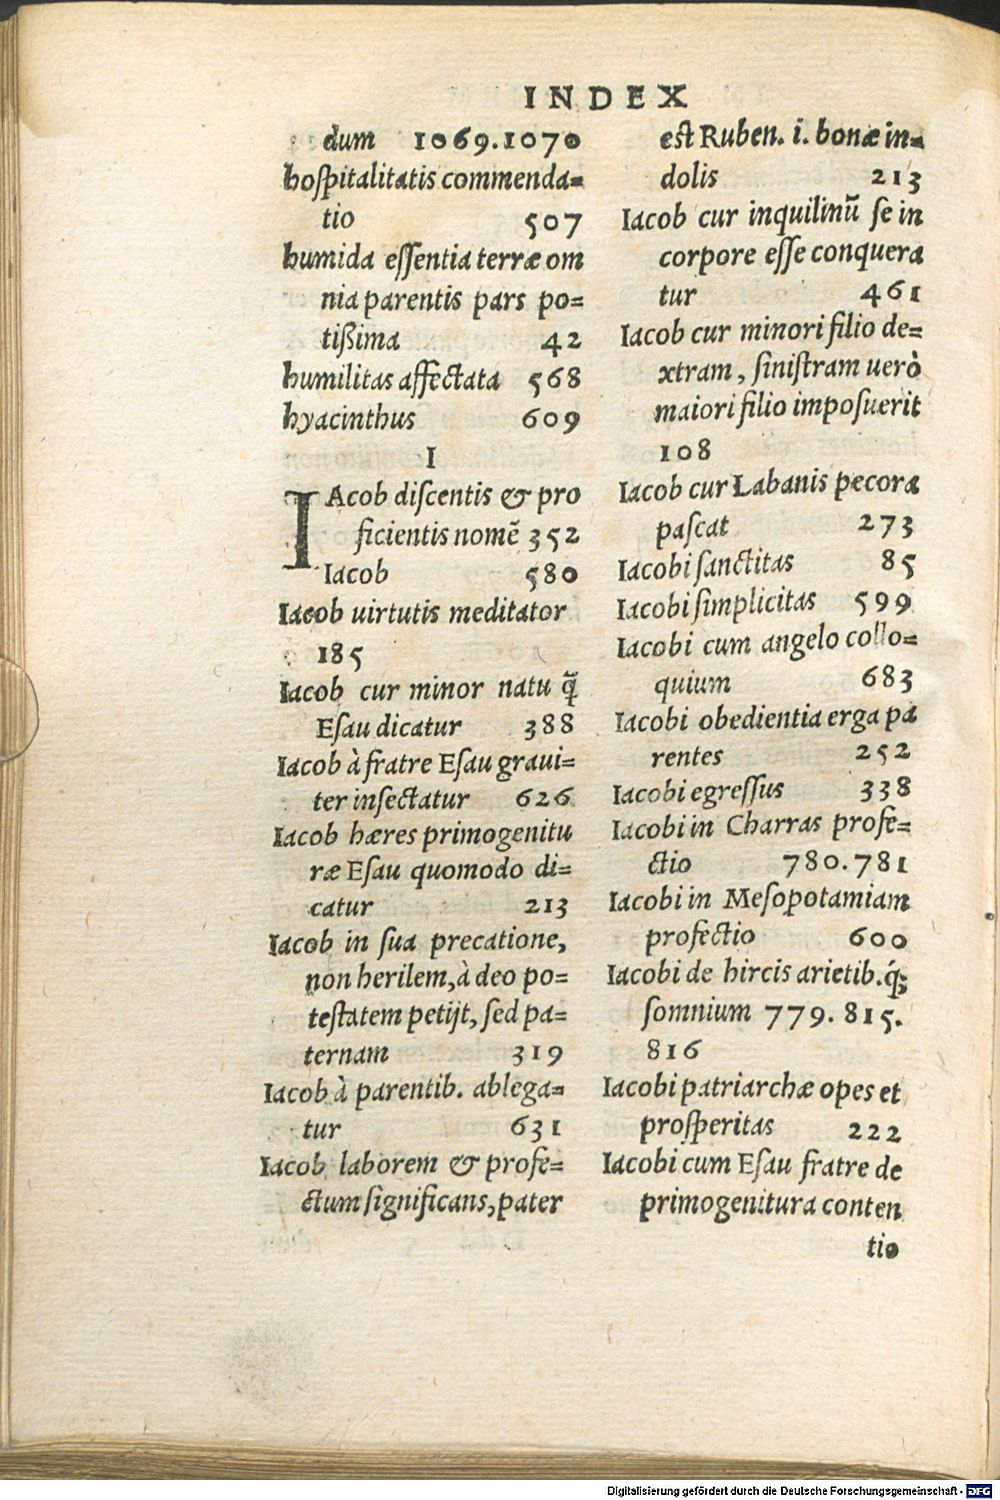 INDEX
dum 1069.1070
hoſpitalitatis commenda=
tio 507
humida eſſentia terræ om
nia parentis pars po=
tißima 42
humilitas affectata 568
hyacinthus 609
I
IAcob diſcentis & pro
ficientis nomẽ 352
Iacob 580
Iacob uirtutis meditator
185
Iacob cur minor natu q̃
Eſau dicatur 388
Iacob à fratre Eſau graui=
ter inſectatur 626
Iacob hæres primogenitu
ræ Eſau quomodo di=
catur 213
Iacob in ſua precatione,
non herilem, à deo po=
teſtatem petijt, ſed pa=
ternam 319
Iacob à parentib. ablega=
tur 631
Iacob laborem & profe=
ctum ſignificans, pater
est Ruben. i. bonæ in=
dolis 213
Iacob cur inquilinũ ſe in
corpore eſſe conquera
tur 461
Iacob cur minori filio de=
xtram, ſiniſtram uerò
maiori filio impoſuerit
108
Iacob cur Labanis pecora
paſcat 273
Iacobi ſanctitas 85
Iacobi ſimplicitas 599
Iacobi cum angelo collo=
quium 683
Iacobi obedientia erga pa
rentes 252
Iacobi egreſſus 338
Iacobi in Charras profe=
ctio 780.781
Iacobi in Meſopotamiam
profectio 600
Iacobi de hircis arietib.q́;
ſomnium 779. 815.
816
Iacobi patriarchæ opes et
proſperitas 222
Iacobi cum Eſau fratre de
primogenitura conten
tio
Digitalisierung gefördert durch die Deutsche Forschungsgemeinschaft - DFG